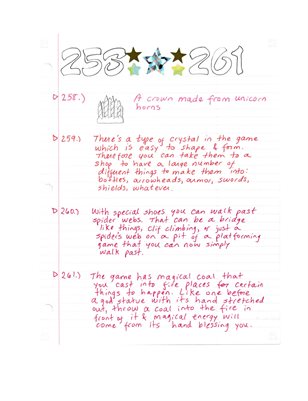 258 261
258.) A crown made from unicorn
horns
259.) There's a type of crystal in the game
which is easy to shape & form.
Therefore you can take them to a
shop to have a large number of
different things to make them into:
bottles, arrowheads, armor, swords,
shields, whatever.
260.) With special shoes you can walk past
spider webs. That can be a bridge
like things, clif climbing, or just a
spider's web on a pit of a platforming
game that you can now simply
walk past.
261.) The game has magical coal that
you cast into fire places for certain
things to happen. Like one before
a god statue with it's hand stretched
out, throw a coal into the fire in
front of it & magical energy will
come from its hand blessing you.